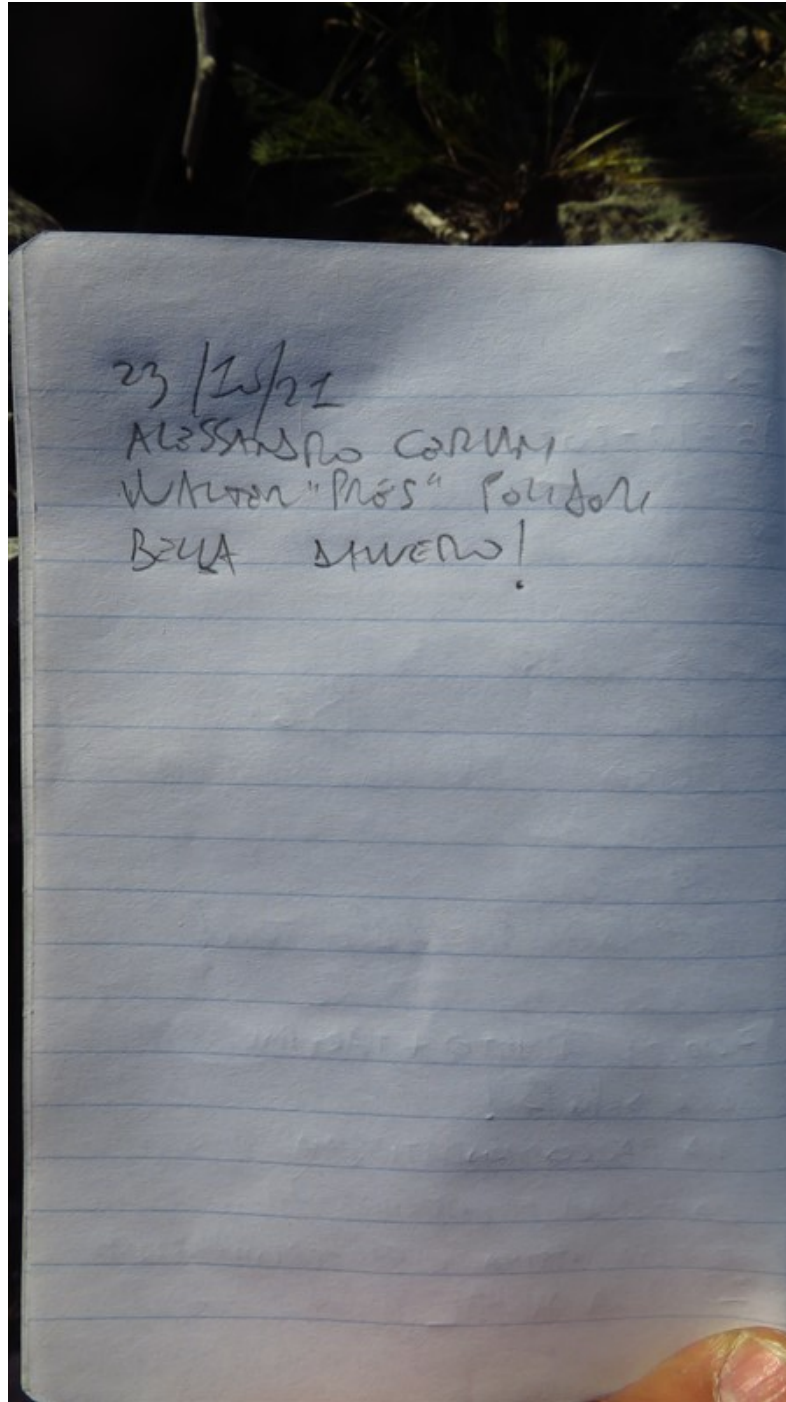 23/10/21
ALESSANDRO CERUMI
WALTER "PRES" POLIDORI
BELLA DAVVERO!